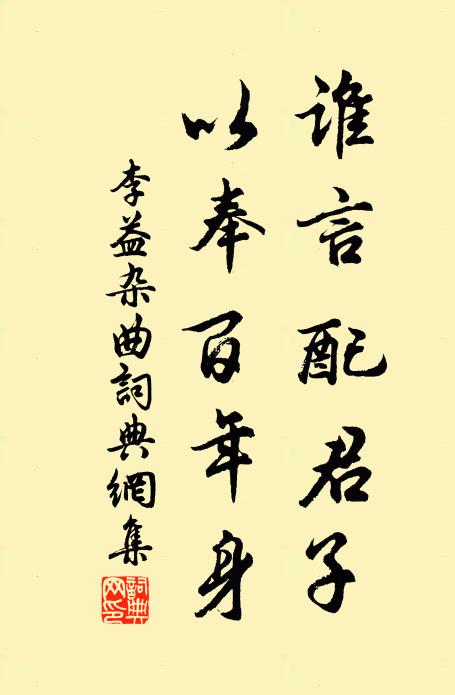 谁言配君子
以奉百年身
李益杂曲詞典網集
詞典網印